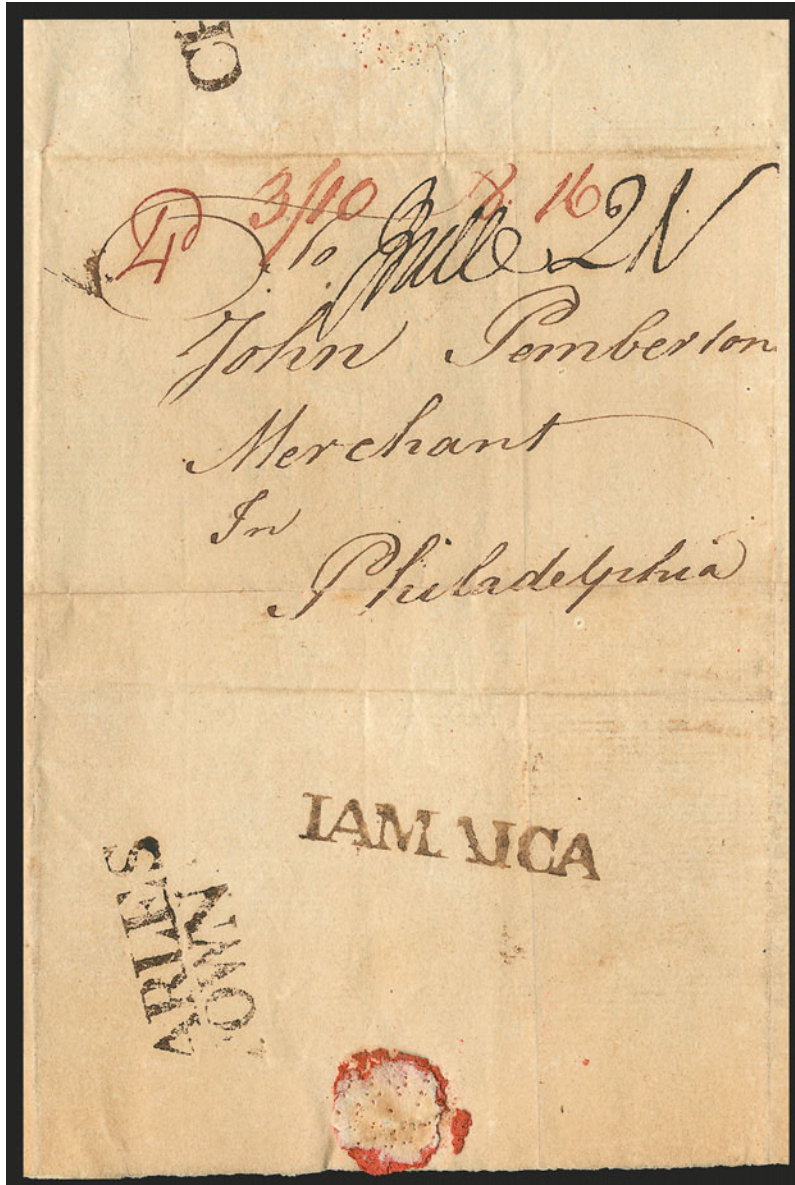 CH
4d 3/10 16
To 21
John Pemberton
Merchant
In
Philadelphia
IAMAICA
ARLES
OWN